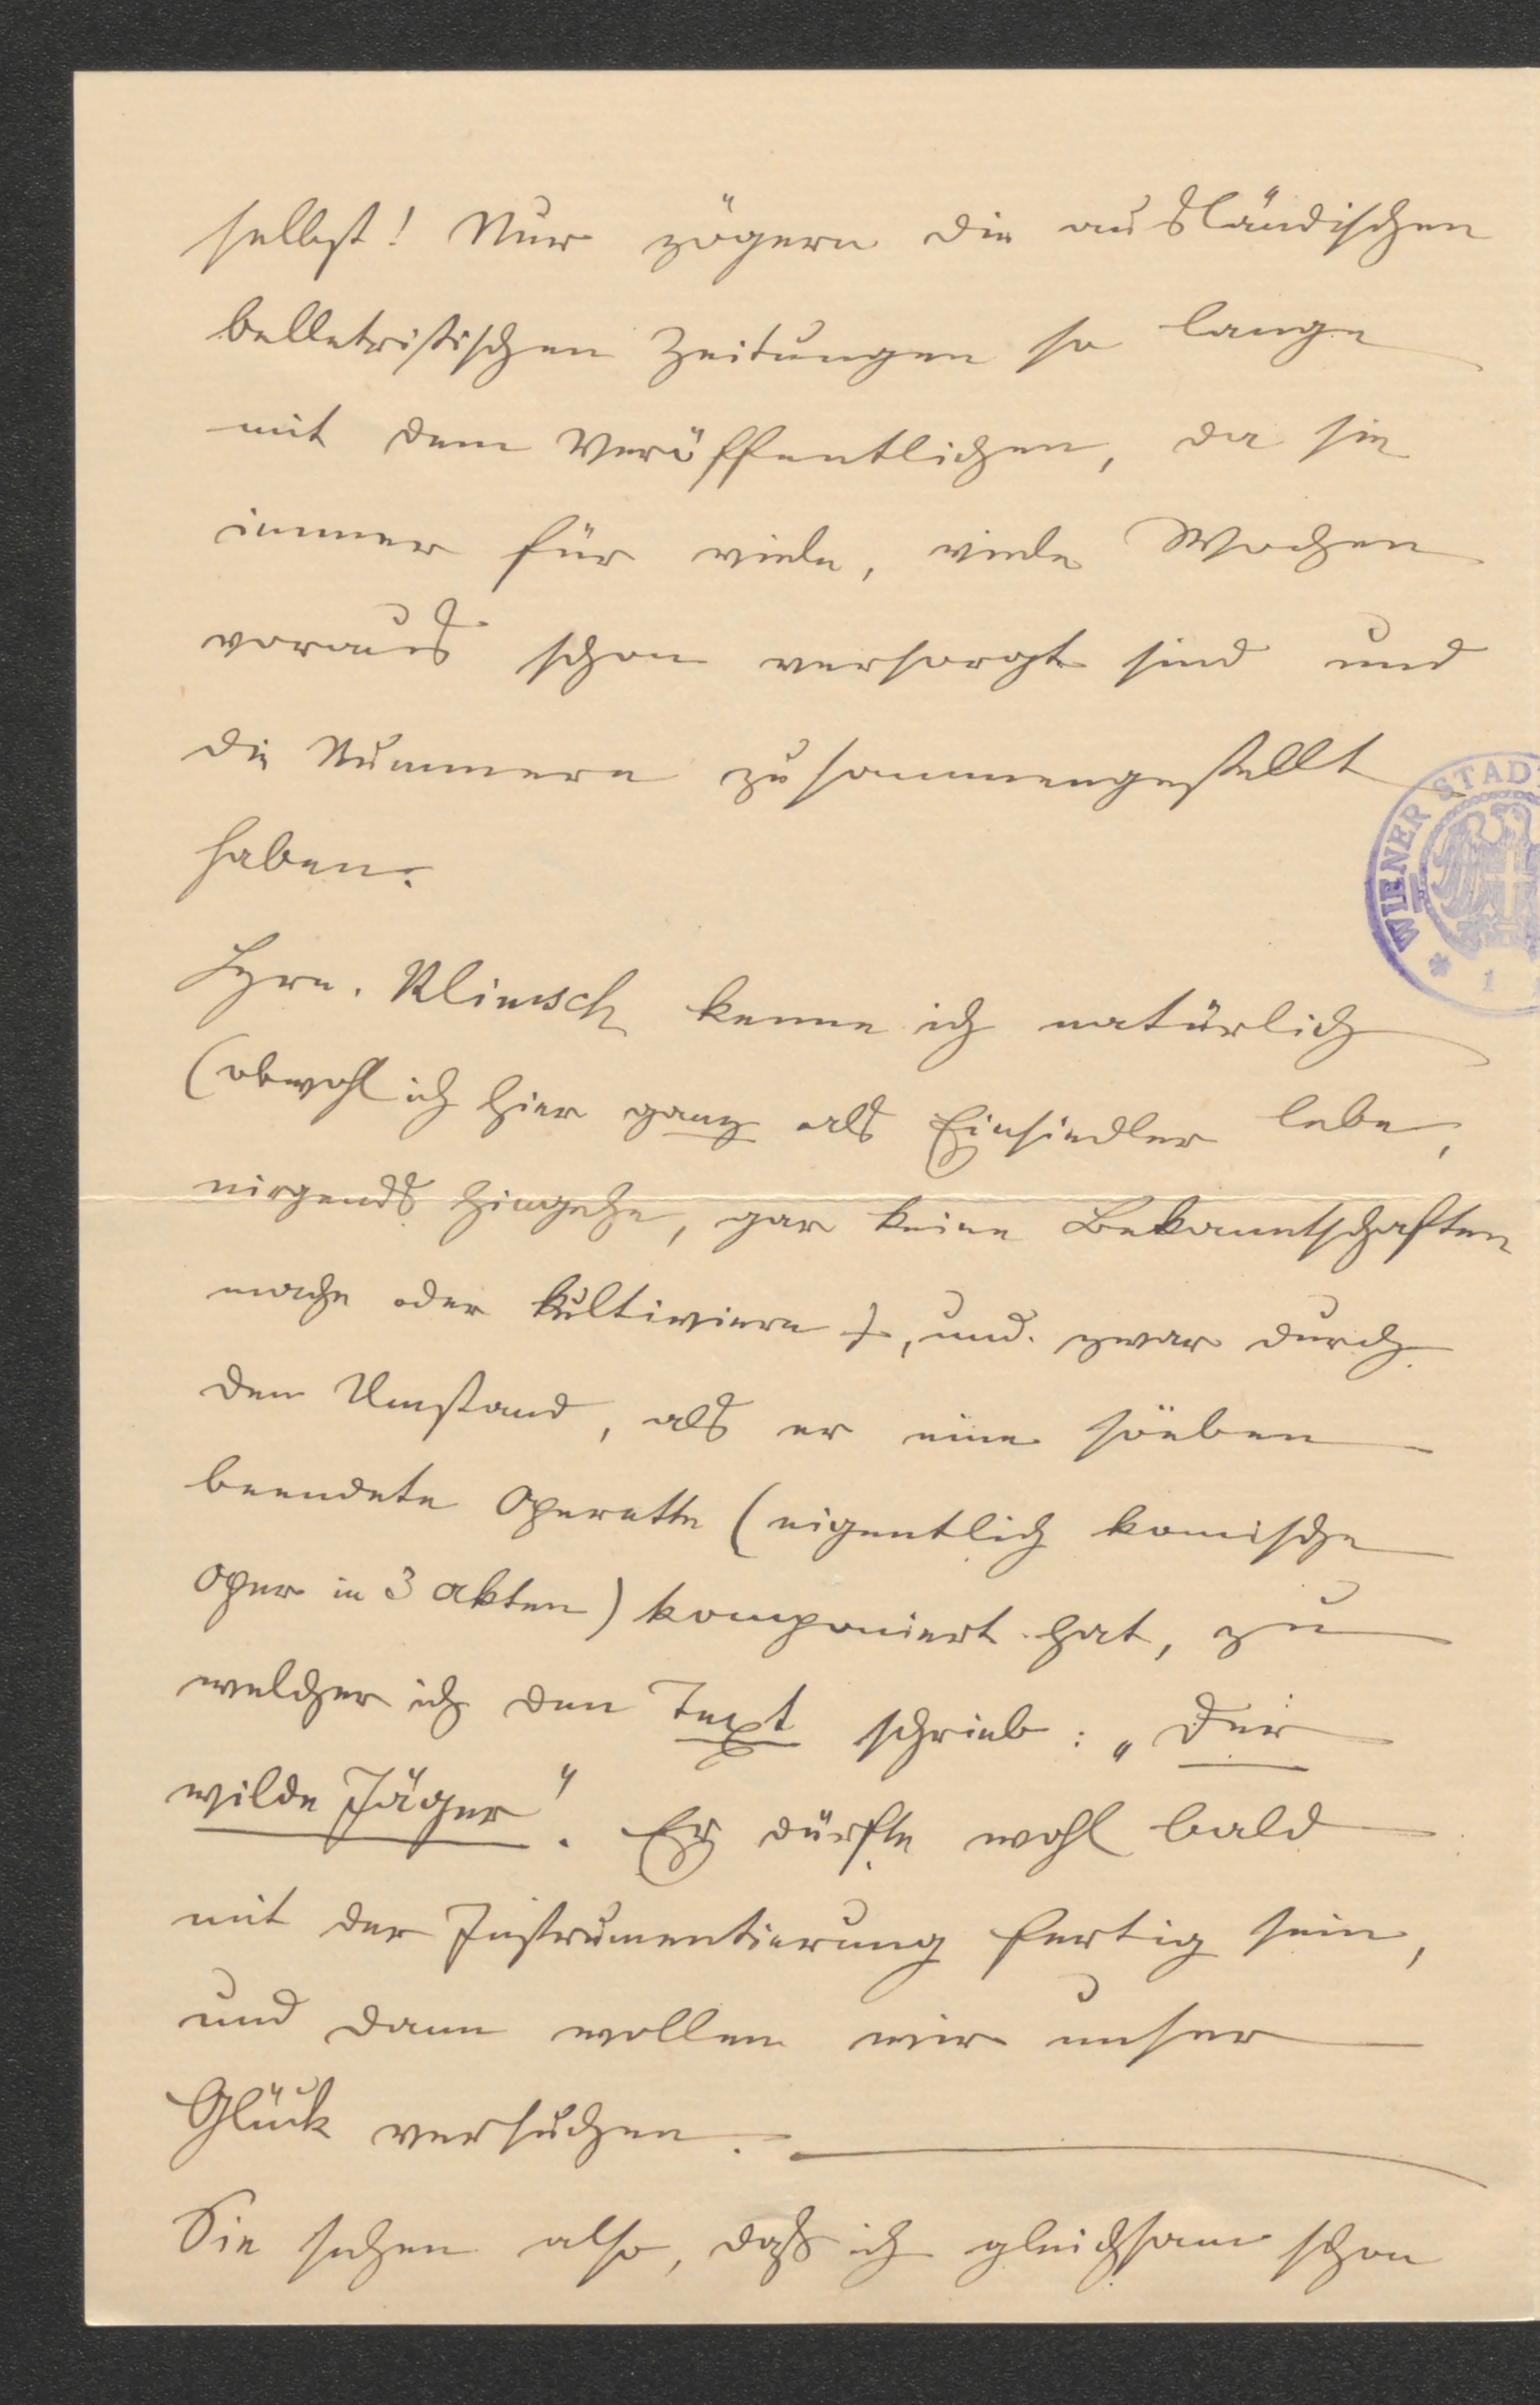 selbst! Nur zögern die ausländischen
belletristischen Zeitungen so lange
mit dem Veröffentlichen, da sie
immer für viele, viele Wochen
voraus schon versorgt sind und
die Nummern zusammengestellt
haben.
WIENER STAD
* 1
Hrn. Klimsch kenne ich natürlich
(obwohl ich hier ganz als Einsiedler lebe,
nirgends hingehe, gar keine Bekanntschaften
mache oder kultiviere), und zwar durch
den Umstand, als er eine soeben
beendete Operette (eigentlich komische
Oper in 3 Akten) komponiert hat, zu
welcher ich den Text schrieb: „Der
wilde Jäger“. Er dürfte wohl bald
mit der Instrumentierung fertig sein,
und dann wollen wir unser
Glück versuchen.
Sie sehen also, daß ich gleichsam schon